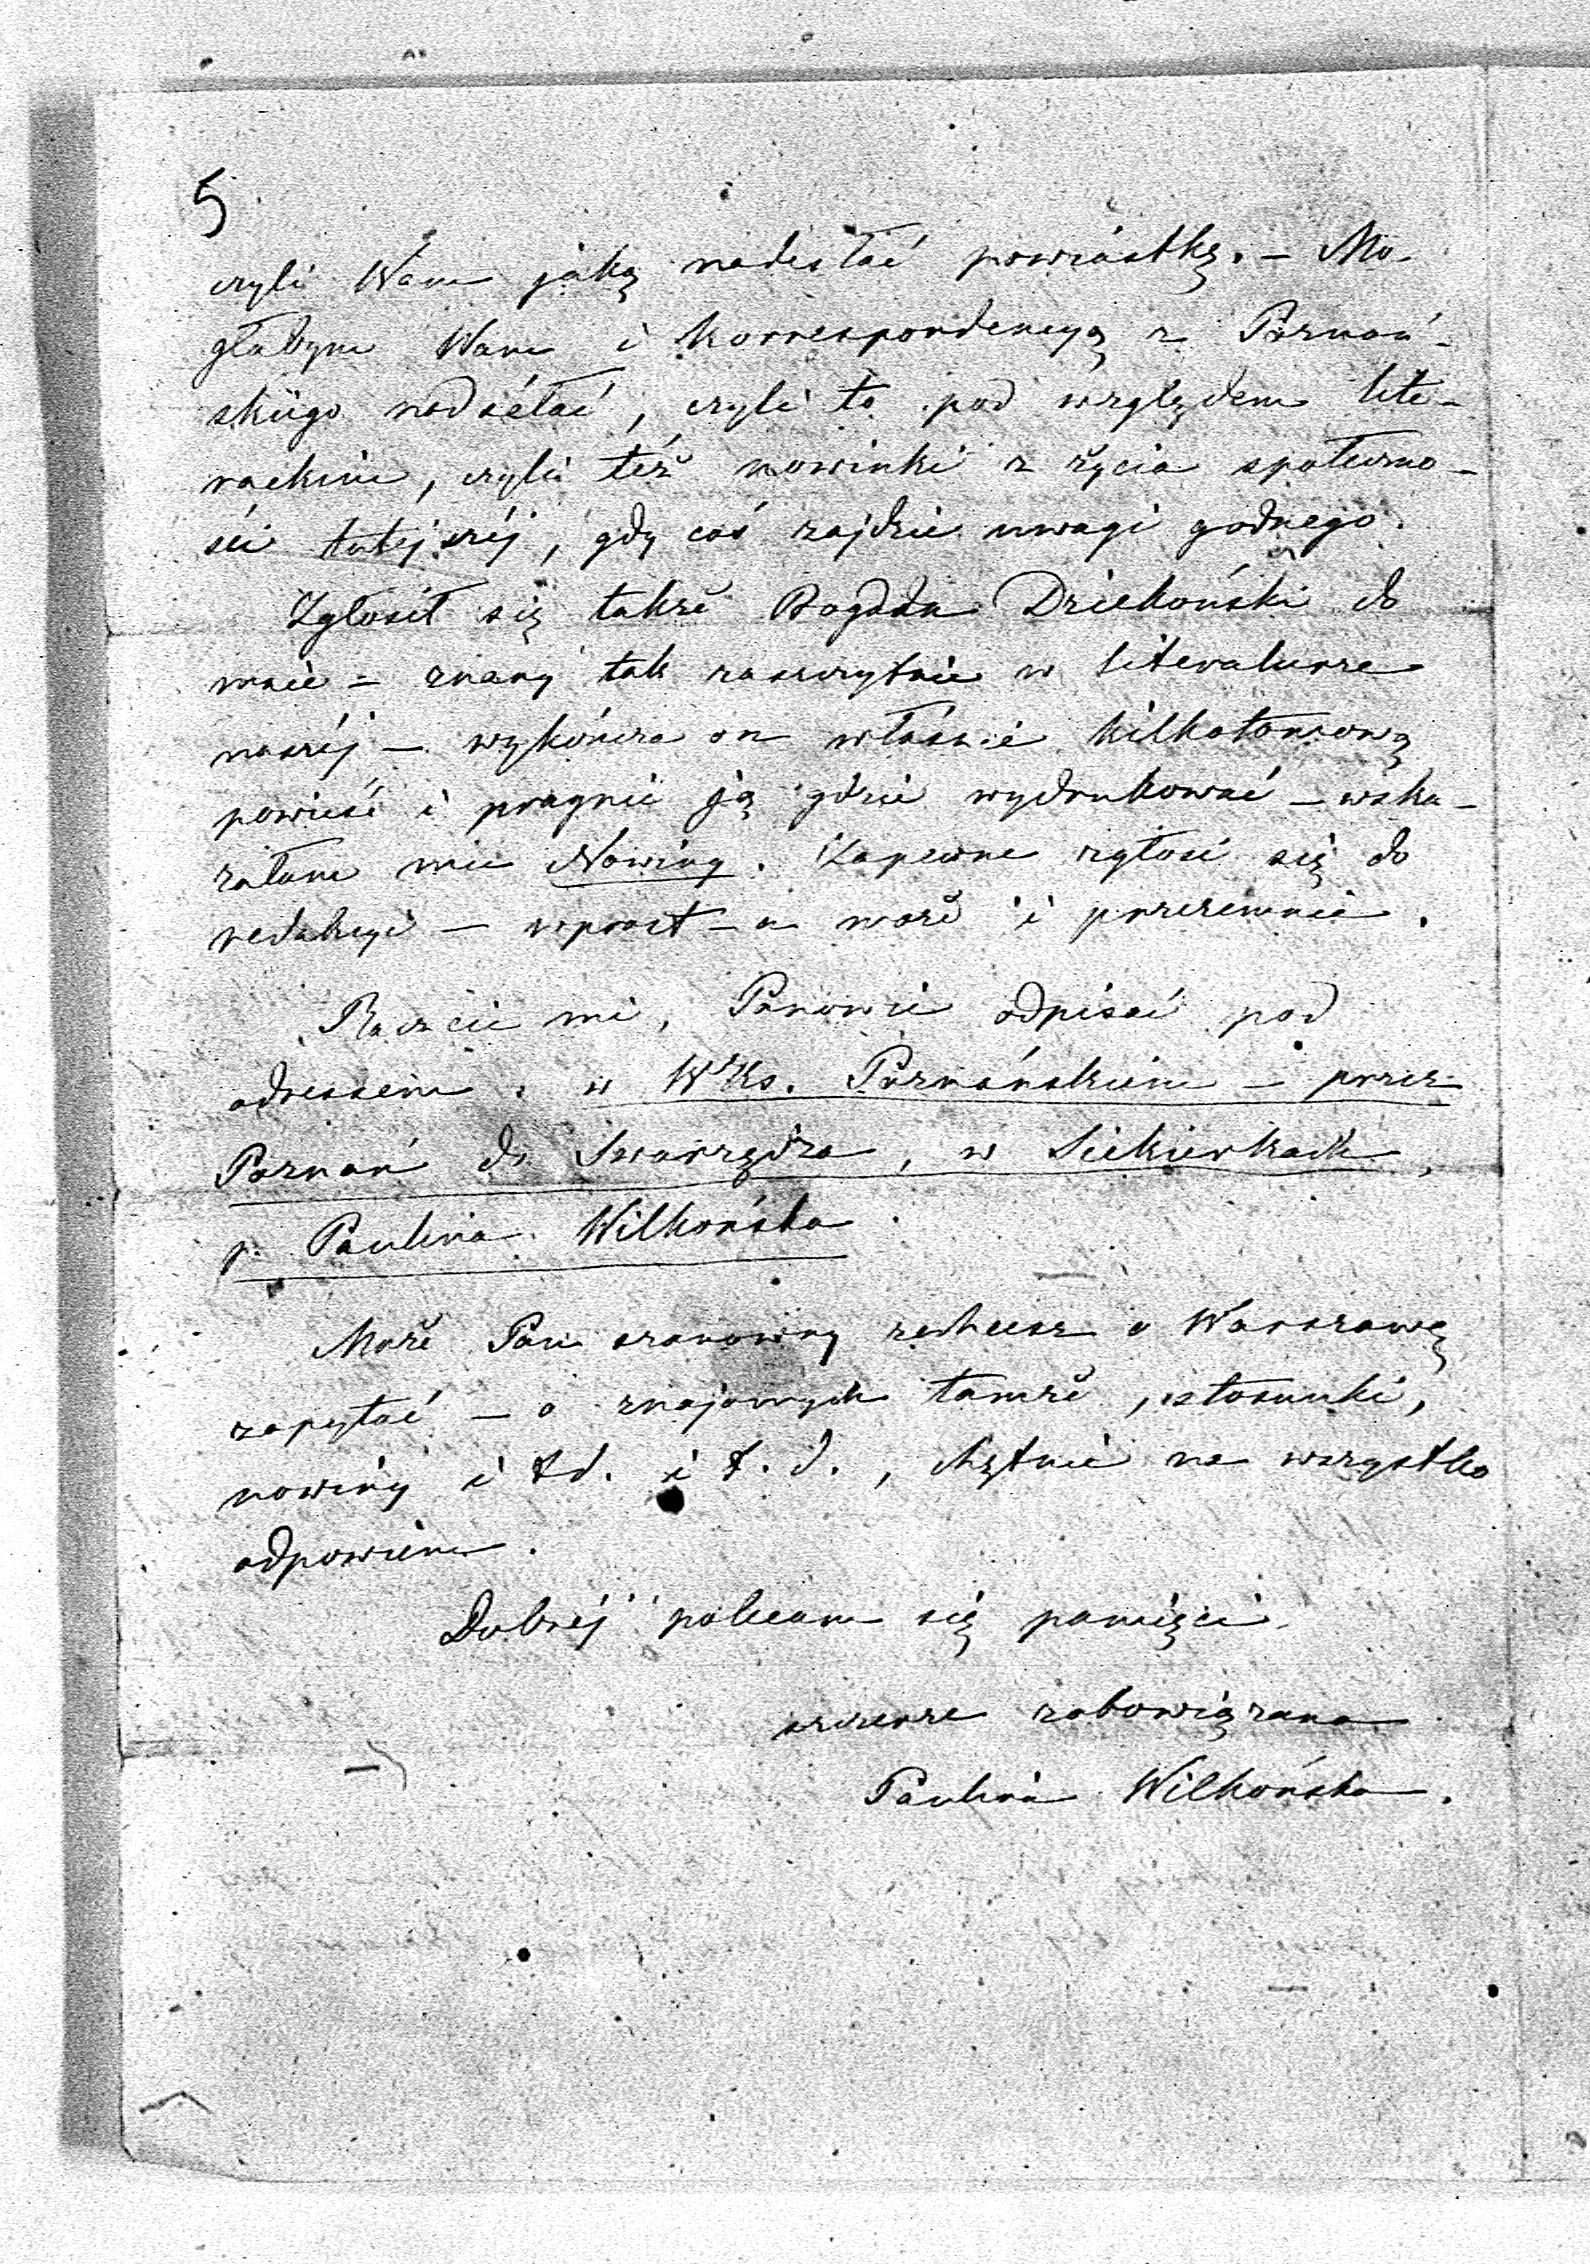 5
czyli Wam jaką nadesłać powiastkę. – Mo-
głabym Wam i korrespondencyą z Poznań-
skiego nadsełać, czyli to pod względem lite-
rackim, czyli téż nowinki z życia społeczno-
ści tutejszéj, gdy coś zajdzie uwagi godnego.
Zgłosił się także Bogdan Dziekoński do
mnie – znany tak zaszczytnie w literaturze
naszéj – wykończa on właśnie kilkotomową
powieść i pragnie ją gdzie wydrukować – wska-
załam mu Nowiny. Zapewne zgłosi się do
redakcyi – wprost – a może i przezemnie.
Raczcie mi, Panowie odpisać pod
adressem. w W Ks. Poznańskiem – przez
Poznań do Swarzędza, w Siekierkach,
p. Paulina Wilkońska
Może Pan szanowny zechcesz o Warszawę
zapytać – o znajomych tamże, stosunki,
nowiny i t d. i t. d., chętnie na wszystko
odpowiem.
Dobréj polecam się pamięci
szczerze zobowiązana
Paulina Wilkońska.